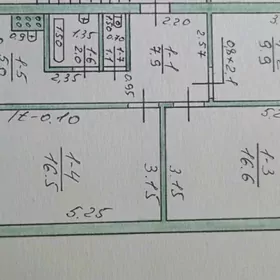 2.20
150
1.35
1.6
2.0
1.7
1.1
1.1
7.9
2.57
2,35
0.95
1.5
5.0
9.9
17-0.10
1-4
16.5
3.15
3.15
1-3
16.6
5.25
5.2